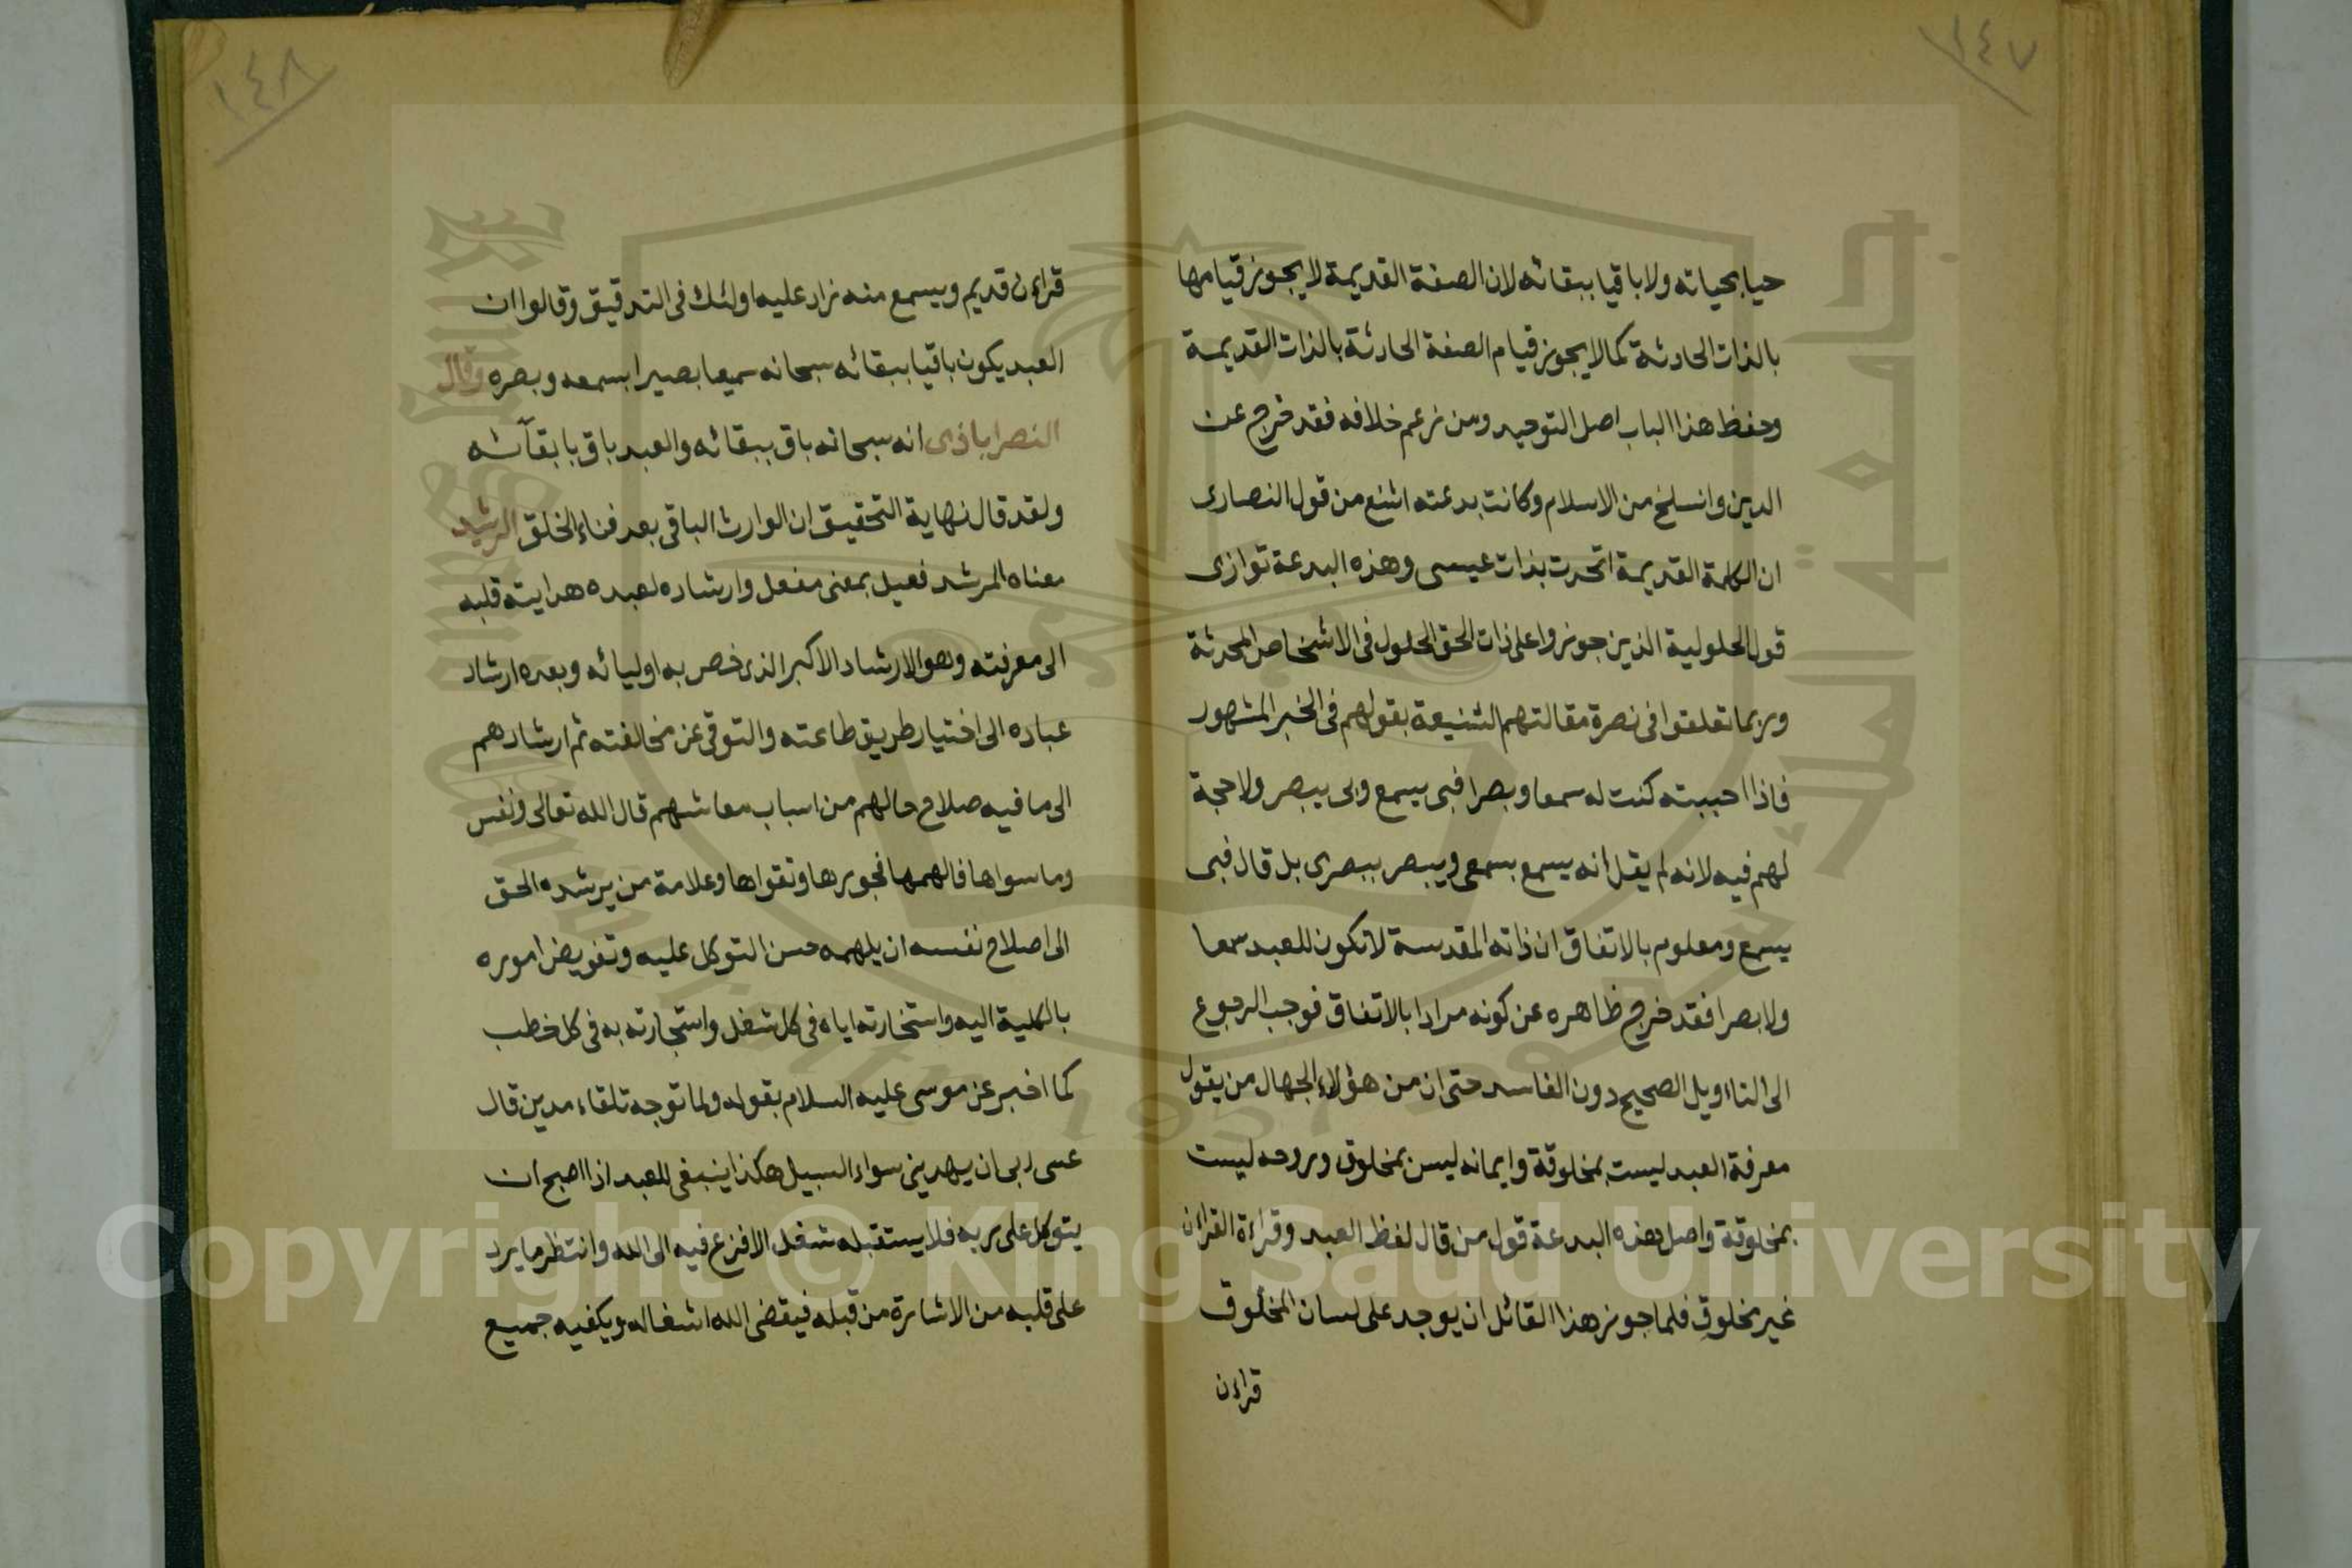 ١٤٧
حيا بحياته ولا باقيا ببقائه لان الصفة القديمة لا يجوز قيامها
بالذات الحادثة كما لا يجوز قيام الصفة الحادثة بالذات القديمة
وحفظ هذا الباب اصل التوحيد ومن زعم خلافه فقد خرج عن
الدين وانسلخ من الاسلام وكانت بدعته اشنع من قول النصارى
ان الكلمة القديمة اتحدت بذات عيسى وهذه البدعة توازى
قول الحلولية الذين جوزوا على ذات الحق الحلول فى الاشخاص المحدثة
وربما تعلقوا فى نصرة مقالتهم الشنيعة بقولهم فى الخبر المشهور
فاذا احببته كنت له سمعا وبصرا فبى يسمع وبى يبصر ولا حجة
لهم فيه لانه لم يقل انه يسمع بسمعى ويبصر ببصرى بل قال فبى
يسمع ومعلوم بالاتفاق ان ذاته المقدسة لا تكون للعبد سمعا
ولا بصرا فقد خرج ظاهره عن كونه مرادا بالاتفاق فوجب الرجوع
الى التااويل الصحيح دون الفاسد حتى ان من هؤلاء الجهال من يقول
معرفة العبد ليست بمخلوقة وايمانه ليس بمخلوق وروحه ليست
بمخلوقة واصل هذه البدعة قول من قال لفظ العبد وقراءة القراءن
غير مخلوق فلما جوز هذا القائل ان يوجد على لسان المخلوق
قراءن
١٤٨
قراءن قديم ويسمع منه زاد عليه اولئك فى التدقيق وقالوا ان
العبد يكون باقيا ببقائه سبحانه سميعا بصيرا بسمعه وبصره وقال
النصراباذى انه سبحانه باق ببقائه والعبد باق بابقآئه
ولقد قال نهاية التحقيق ان الوارث الباقى بعد فناء الخلق الرشيد
معناه المرشد فعيل بمعنى مفعل وارشاده لعبده هدايته قلبه
الى معرفته وهو الارشاد الاكبر الذى خص به اوليائه وبعده ارشاد
عباده الى اختيار طريق طاعته والتوقى عن مخالفته ثم ارشادهم
الى ما فيه صلاح حالهم من اسباب معاشهم قال الله تعالى ونفس
وما سواها فالهمها فجورها وتقواها وعلامة من يرشده الحق
الى اصلاح نفسه ان يلهمه حسن التوكل عليه وتفويض اموره
بالكلية اليه واستخارته اياه فى كل شغل واستجارته به فى كل خطب
كما اخبر عن موسى عليه السلام بقوله ولما توجه تلقاء مدين قال
عسى ربى ان يهدينى سواء السبيل هكذا ينبغى للعبد اذا اصبح ان
يتوكل على ربه فلا يستقبله شغل الا فزع فيه الى الله وانتظر ما يرد
على قلبه من الاشارة من قبله فيقضى الله اشغاله ويكفيه جميع
Copyright © King Saud University